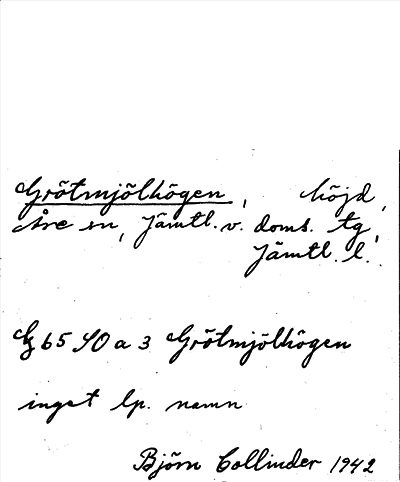 Grötmjölhögen, höjd,
Åre sn, Jämtl. v. doms. tg,
Jämtl. l.
G 65 SO a 3 Grötmjölhögen
inget lp. namn
Björn Collinder 1942